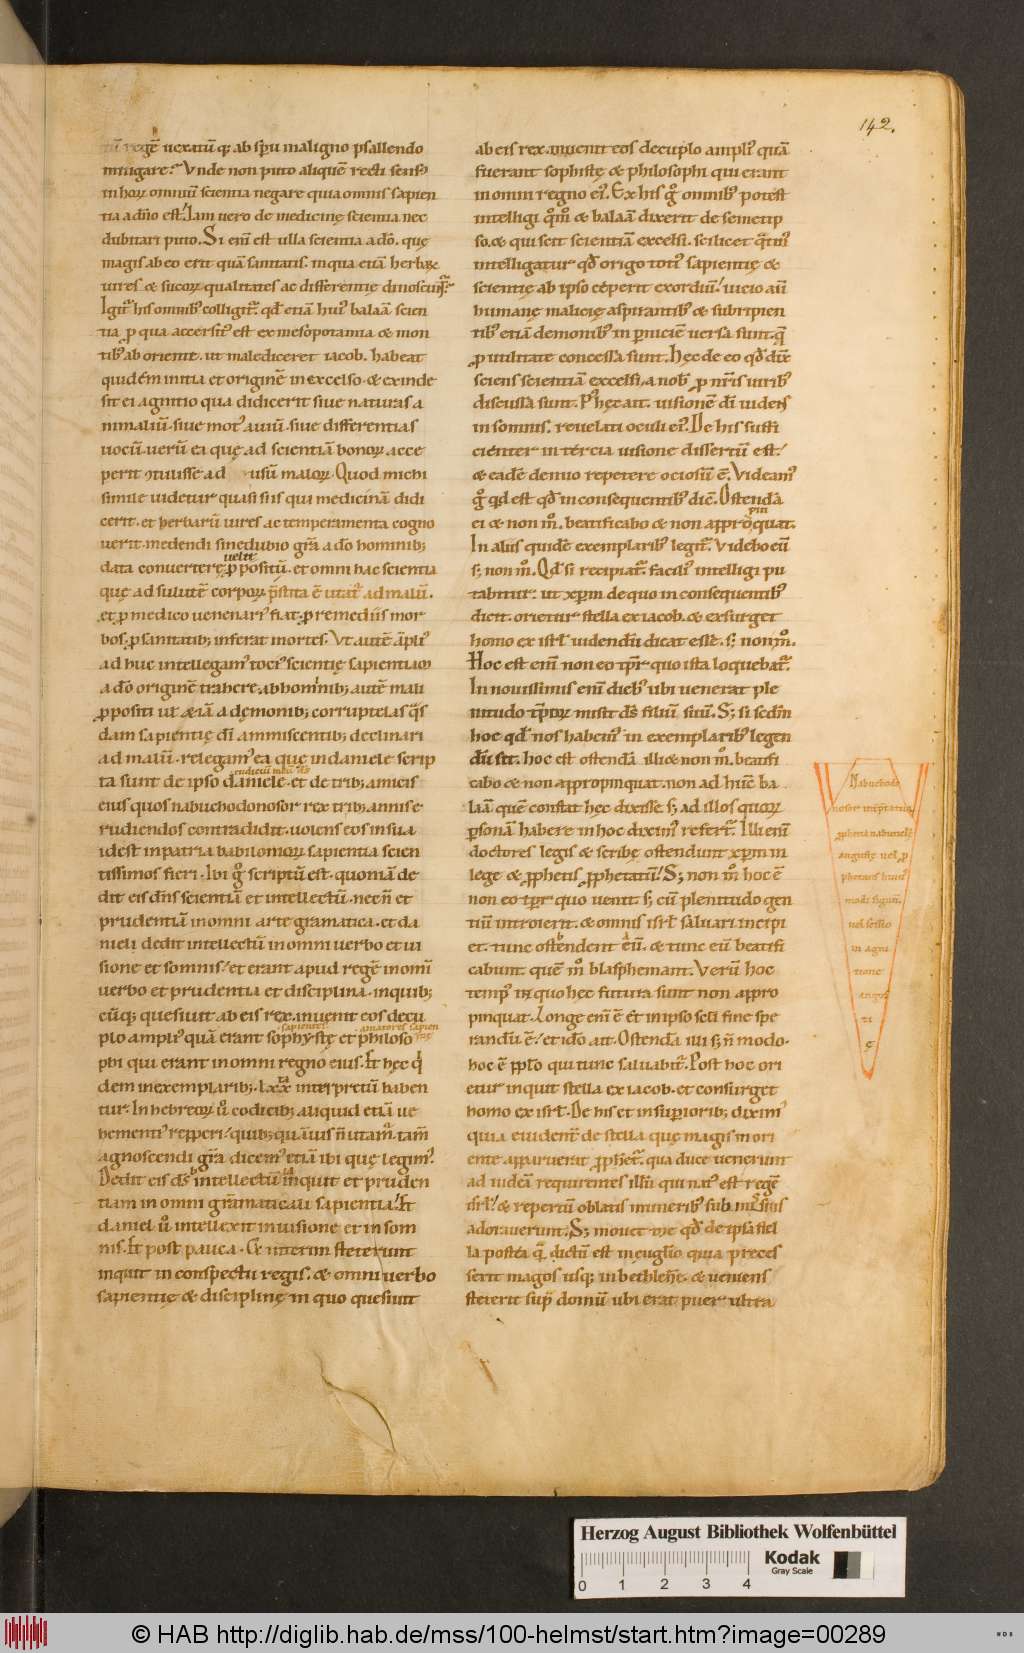 142.
tū regē uexatū qͥ ab spū maligno psallendo
mitigare? Vnde non puto aliquē recti sensꝰ
in hoꝝ omniū scientia negare quia omnis sapien
tia a dn̄o est. Iam uero de medicinę scientia nec
dubitari puto. Si enī est ulla scientia a dō. quę
magis ab eo erit quā sanitatis. in qua etiā herbaꝝ
uires & sucoꝝ qualitates ac differentię dinoscunt᷑.
Igit᷑ his omnibꝰ colligit᷑. qd̄ etiā huiꝰ balaā scien
tia ꝓ qua accersitꝰ est ex mesopotamia de mon
tibꝰ ab oriente. ut malediceret iacob. habeat
quidem initia et originē in excelso. & exinde
sit ei agnitio qua didicerit siue naturas a
nimaliū. siue motꝰ auiū. siue differentias
uocū. uerū ea quę ad scientiā bonoꝝ acce
perit ꝯtuisse ad usū maloꝝ. Quod michi
simile uidetur quasi si is qui medicinā didi
cerit. et herbarū uires ac temperamenta cogno
uerit. medendi sine dubio gr̄a a dō hominib;
uelit
data conuertere ꝓpositū. et omni hac scientia
quę ad salutē corpoꝝ p̄stita ē utat᷑ ad malū.
et ꝓ medico uenenariꝰ fiat. ꝓ remediis mor
bos. ꝓ sanitatib; inferat mortes. Vt autē āpliꝰ
ad huc intellegamꝰ tociꝰ scientię sapientiam
a dō originē trahere. ab hominib; autē mali
ꝓpositi uł etiā a dęmonib; corruptelas q̄s
dam sapientię dī ammiscentib; declinari
ad malū. relegamꝰ ea quę in daniele scrip
ta sunt de ipso daniele. et de trib; amicis
eius quos nabuchodonosor rex trib; annis e
rudiendos contradidit. uolens eos in sua
idest in patria babilonioꝝ sapientia scien
tissimos fieri. Ibi g̊ scriptū est. quoniā de
dit eis dn̄s scientiā et intellectū. necn̄ et
prudentiā in omni arte gramatica. et da
nieli dedit intellectū in omni uerbo et ui
sione et somnis. et erant apud regē in omī
uerbo et prudentia et disciplina. inquib;
cūq; quesiuit ab eis rex. inuenit eos decu
sapientes amatores sapien
plo ampliꝰ quā erant sophystę et philoso
phi qui erant in omni regno eius. Et hęc qͥ
dem in exemplarib; lxx interpretū haben
tur. In hebreoꝝ ů codicib; aliquid etiā ue
hementiꝰ repperi. quib; quāuis n̄ utam᷑. tam̄
agnoscendi gr̄a dicemꝰ etiā ibi quę legimꝰ.
Dedit eis ds̄ intellectū inquit et pruden
tiam in omni gr̄amatica ui sapientia. Et
daniel ů intellexit in uisione et in som
nis. Et post pauca. Et uiterin steterunt
inquit in conspectu regis. & omni uerbo
sapientię & disciplinę in quo quesiuit
ab eis rex. inuenit eos decuplo ampliꝰ quā
fuerant sophistę & philosophi qui erant
in omni regno eiꝰ. Ex his g̊ omnibꝰ potest
intelligi qͦm̊ & balaā dixerit de semetip
so. & qui scit scientiā excelsi. scilicet q̄tinꝰ
intelligatur qd̄ origo totiꝰ sapientię &
scientię ab ipso ceperit exordiū. uicio aū
humanę malicię aspirantibꝰ & subripien
tibꝰ etiā demonibꝰ in p̱niciē uersa sunt. quę
ꝓ utilitate concessa sunt. Hęc de eo qd̄ dix̄
sciens scientiā excelsi, a nob̄ ꝓ nr̄is uiribꝰ
discussa sunt. Pꝰ hęc ait. uisionē dī uidens
in somnis. reuelati oculi eiꝰ. De his suffi
cienter in tercia uisione dissertū est.
& eadē denuo repetere ociosū ē. Videamꝰ
g̊ qͥd est qd̄ in consequentibꝰ dic̄. Ostendā
pin
ei & non m̊. beatificabo & non appro quat.
In aliis quidē exemplaribꝰ legit᷑. Videbo eū
s; non m̊. Qd̄ si recipiat᷑. faciliꝰ intelligi pu
tabitur. ut xp̄m de quo in consequentibꝰ
dicit. orietur stella ex iacob. & exsurget
homo ex isrł. uidendū dicat esse. s; non m̊.
Hoc est enī non eo tp̄r quo ista loquebat᷑.
In nouissimis enī diebꝰ ubi uenerat ple
nitudo tp̄oꝝ misit ds̄ filiū suū. S; si scd̄m
hoc qd̄ nos habemꝰ in exemplaribꝰ legen
dū sit. hoc est ostendā illi & non m̊. beatifi
cabo & non appropinquat. non ad hūc ba
laā quē constat hęc dixisse s; ad illos quoꝝ
p̱sonā habere in hoc diximꝰ refert᷑. Illi enī
doctores legis & scribę ostendunt xp̄m in
lege & ꝓphetis ꝓphetatū. S; non m̊ hoc ē
non eo tp̄r quo uenit. s; cū plenitudo gen
tiū introierit. & omnis isrł saluari incipi
et. tunc ostendent eū. & tunc eū beatifi
cabunt quē m̊ blasphemant. Verū hoc
tempꝰ in quo hęc futura sunt non appro
pinquat. Longe enī ē et in ipso scłi fine spe
randū ē. et idō ait. Ostendā illi s; n̄ modo.
hoc ē pp̄lo qui tunc saluabit᷑. Post hoc ori
etur inquit stella ex iacob. et consurget
homo ex isrł. De his et in supioribꝰ diximꝰ
quia euident̄ de stella quę magis in ori
ente apparuerat ꝓphet᷑. qua duce uenerunt
ad iudeā requirentes illū qui natꝰ est regē
isrł. & repertū oblatis muneribꝰ submissius
adorauerunt. S; mouet me qd̄ de ipsa stel
la postea q̄ dictū est in euglio quia preces
serit magos usq; in bethleē. & ueniens
steterit supͣ domū ubi erat puer ultra
Nabuchodo
nosor interp̄tatur
ꝓpheta nabuncłę
angustię uel ꝓ
phetans huiꝰ
modi signū.
uel sessio
in agni
tione
angus
ti
ę
Herzog August Bibliothek Wolfenbüttel
0 1 2 3 4
Kodak
Gray Scale
© HAB http://diglib.hab.de/mss/100-helmst/start.htm?image=00289